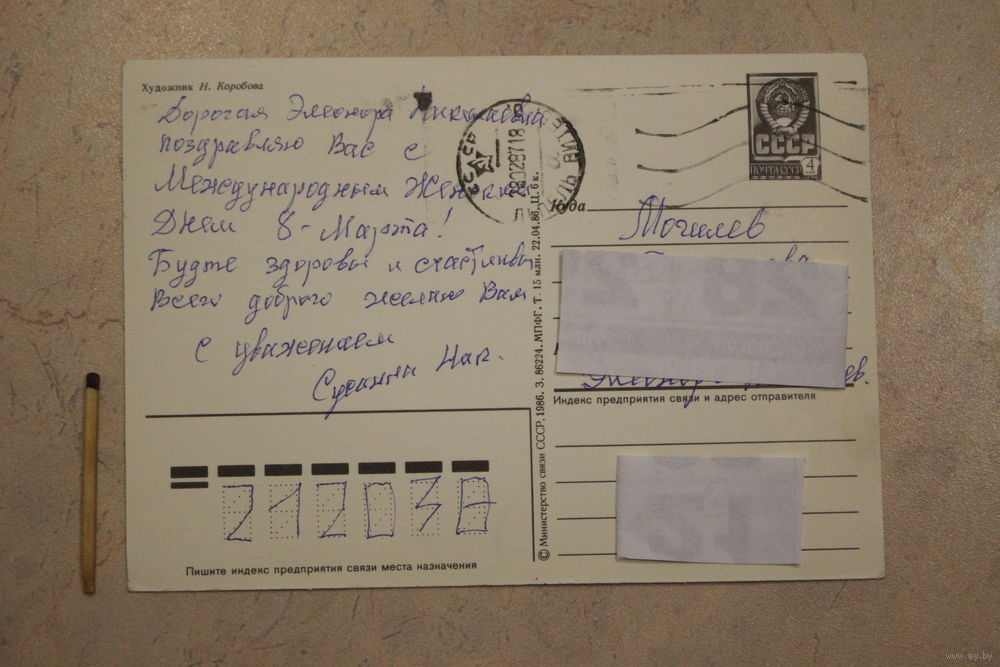 Художник Н. Коробова
Дорогая Элеонора
поздравляю Вас с
Международным Женским
Днем 8-Марта!
Будте здоровы и счастливы
Всего доброго желаю Вам
с уважением
БССР
280287 18
ВИТЕБ
СССР
ПОЧТА СССР 4
Куда
Могилев
ев.
Индекс предприятия связи и адрес отправителя
© Министерство связи СССР, 1986. З. 86224. МПФГ. Т. 15 млн. 22.04.86. Ц. 6 к.
212030
Пишите индекс предприятия связи места назначения
www.ay.by